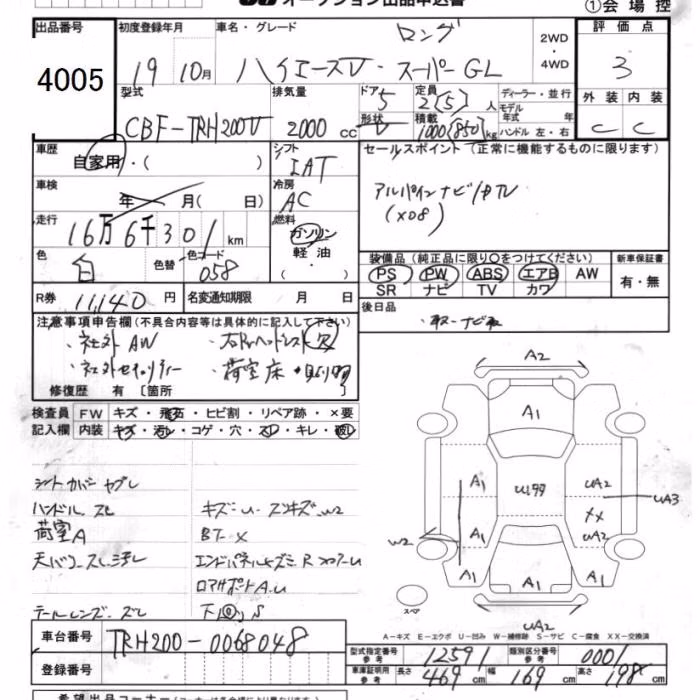 オークション出品申込書
①会場控
出品番号
4005
初度登録年月
19 10月
車名・グレード
ロング
ハイエースV・スーパーGL
2WD
・
4WD
評価点
3
外装 内装
C C
型式
CBF-TRH200V
排気量
2000 cc
ドア
5
形状
V
定員
2(5)人
積載
1000(850)kg
ディーラー・並行
モデル年式 年
ハンドル 左・右
車歴
自家用・( )
シフト
IAT
車検
年 月( 日)
冷房
AC
走行
16万6千301km
燃料
ガソリン
軽油
( ・ )
色
白
色替
色コード
058
R券 11,140円
名変通知期限 月 日
セールスポイント(正常に機能するものに限ります)
アルパインナビ/DTV
(X08)
装備品(純正品に限り○をつけてください)
PS PW ABS エアB AW
SR ナビ TV カワ
新車保証書
有・無
後日品
注意事項申告欄(不具合内容等は具体的に記入して下さい)
・社外AW
・社外セキュリティー
・荷室床
修復歴 有 [箇所 ]
検査員記入欄
FW キズ・飛石・ヒビ割・リペア跡・×要
内装 キズ・汚レ・コゲ・穴・スレ・キレ・破レ
シートカバー ヤブレ
ハンドル スレ
荷室A
天バリ スレ 汚レ
テールレンズ・ズレ
キズ・U・スレキズ W2
BT-X
エンドパネル
下回りS
A2
A1
A1
A1
A1
A1
A1
W2
UA2
XX
UA2
UA3
A1
UA2
スペア
A-キズ E-エクボ U-凹み W-補修跡 S-サビ C-腐食 XX-交換済
車台番号
TRH200-0068048
登録番号
型式指定番号
参考
12591
類別区分番号
参考
0001
車庫証明用
参考
長さ 469cm 幅 169cm 高さ 198cm
希望出品コーナー